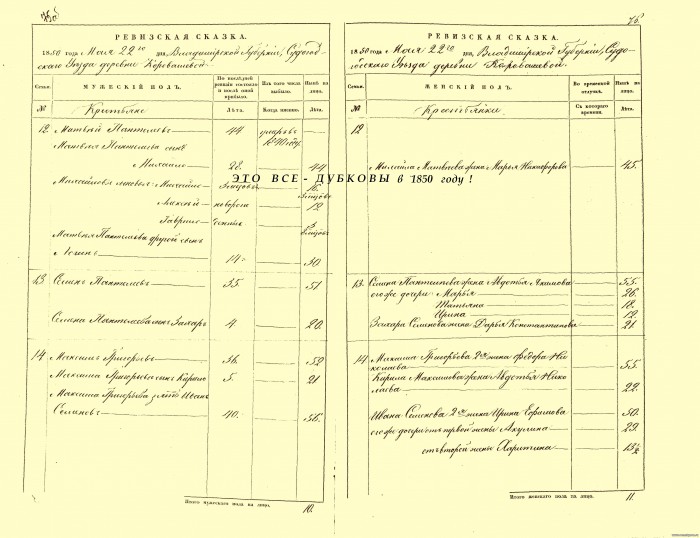 75об
РЕВИЗСКАЯ СКАЗКА.
1850 года Мая 22го дня, Владимирской Губернии, Судогод-
скаго Уезда деревни Коровашевой
Семьи. МУЖЕСКІЙ ПОЛЪ. По последней ревизіи состояло и после оной прибыло. Изъ того числа выбыло. Ныне на лицо.
№ Крестьяне Лета. Когда именно. Лета.
12. Матвей Пантелеевъ 44 умеръ 1840 году
Матвея Пантелеева сынъ
Михайло 28. 44
Михайловы сыновья Михайло 16.
ЭТО ВСЕ - ДУБКОВЫ в 1850 году !
Алексей новорож 12
Гаврило денные 3
Матвея Пантелеева другой сынъ
Логинъ 14 30
13. Семенъ Пантелеевъ 35. 51
Семена Пантелеева сынъ Захаръ 4. 20.
14. Максимъ Григорьевъ 36. 52
Максима Григорьева сынъ Кирило 5. 21
Максима Григорьева Иванъ
Семеновъ 40. 56.
Итого мужескаго пола на лицо. 10.
76
РЕВИЗСКАЯ СКАЗКА.
1850 года Мая 22го дня, Владимирской Губерніи, Судо-
годскаго Уезда деревни Коровашевой.
Семьи. ЖЕНСКІЙ ПОЛЪ. Во временной отлучке. Ныне на лицо.
№ Крестьянки Съ котораго времени. Лета.
12
Михайла Матвеева жена Марья Никифорова 45.
13. Семена Пантелеева жена Авдотья Якимова 55.
его же дочери Марья 26.
Татьяна 18.
Ирина 12
Захара Семенова жена Дарья Константинова 21
14 Максима Григорьева 2я жена Федора Ни-
колаева 55.
Кирила Максимова жена Авдотья Нико-
лаева 22.
Ивана Семенова 2я жена Ирина Ефимова 50.
его же дочери отъ первой жены Акулина 29.
отъ второй жены Харитина 13½
Итого женскаго пола на лицо. 11.